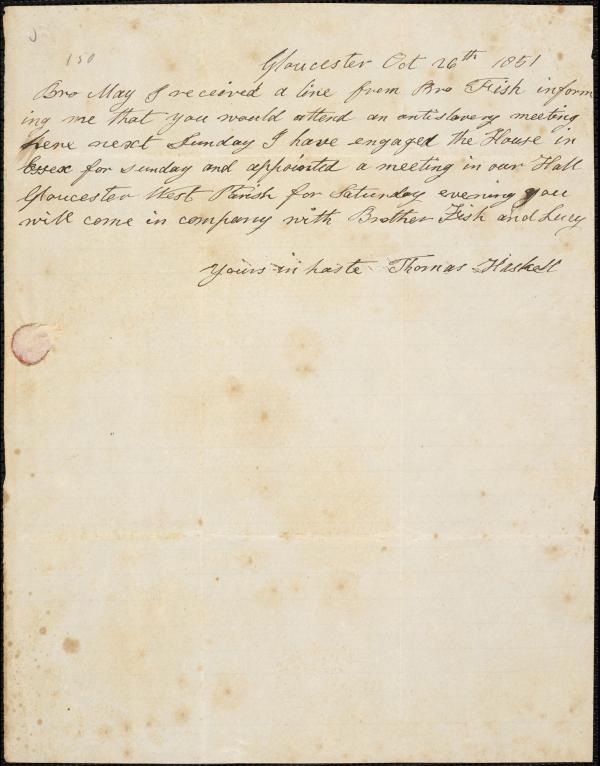 150
Gloucester Oct 26th 1851
Bro May I received a line from Bro Fish inform
ing me that you would attend an antislavery meeting
here next Sunday I have engaged the House in
Essex for sunday and appointed a meeting in our Hall
Gloucester West Parish for Saturday evening you
will come in company with Brother Fish and Lucy
Yours in haste Thomas Haskell